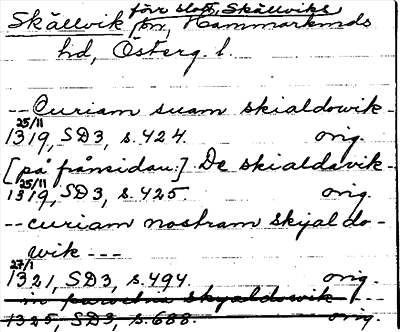 förr slott, Skällviks
Skällvik sn, Hammarkinds
hd, Österg. l.
-- Curiam suam skialdowik -
25/11
1319, SD3, s. 424. orig.
[på frånsidan:] De skialdavik -
25/11
1319, SD3, s. 425. orig.
-- curiam nostram skyaldo-
wik ---
27/1
1321, SD3, s. 494 orig.
in parochia skyaldowik ---
1325, SD3, s. 688. orig.